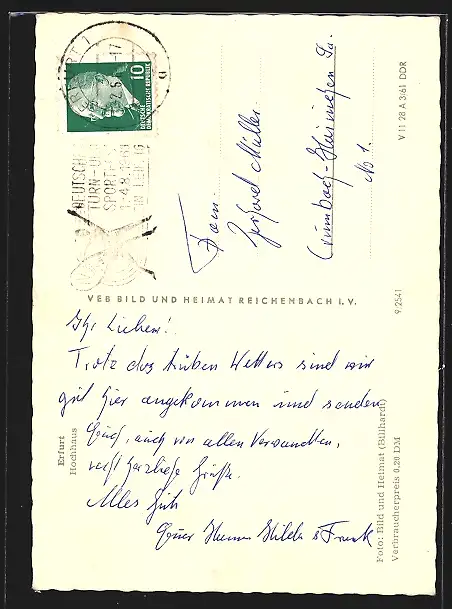 ERFURT 1
10
DEUTSCHE DEMOKRATISCHE REPUBLIK
DEUTSCHES
TURN- U
SPORT
1.-4.8.1963
IN LEIPZIG
Fam.
Gerhard Müller
Crumbach-Hainichen Sa.
No 1.
V 11 28 A 3/61 DDR
VEB BILD UND HEIMAT REICHENBACH I. V.
9/2541
Ihr Lieben!
Trotz des trüben Wetters sind wir
gut hier angekommen und senden
Euch, auch von allen Verwandten,
recht herzliche Grüße.
Alles Gute
Euer Hilda & Frank
Erfurt
Hochhaus
Foto: Bild und Heimat (Billhardt)
Verbraucherpreis 0,20 DM